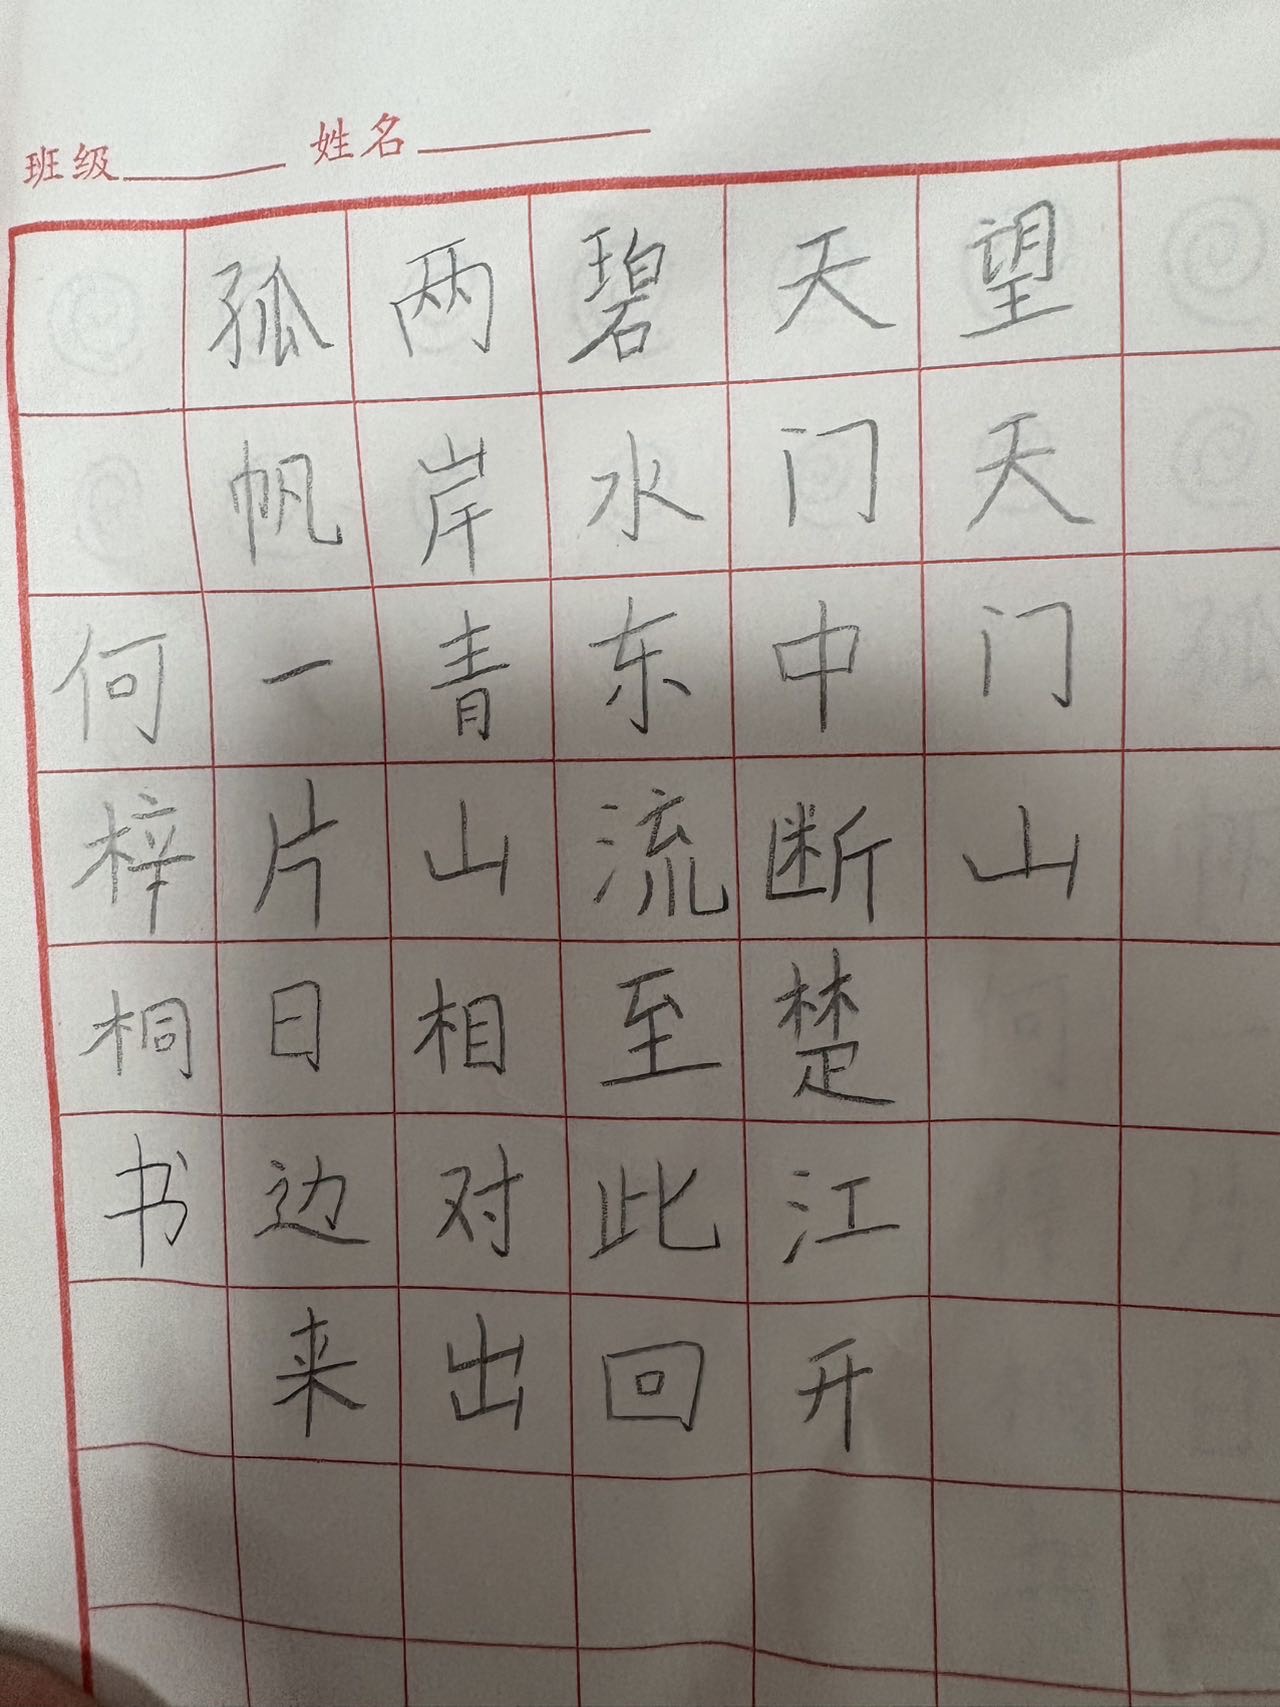 班级 姓名
望天门山
天门中断楚江开
碧水东流至此回
两岸青山相对出
孤帆一片日边来
何梓桐书